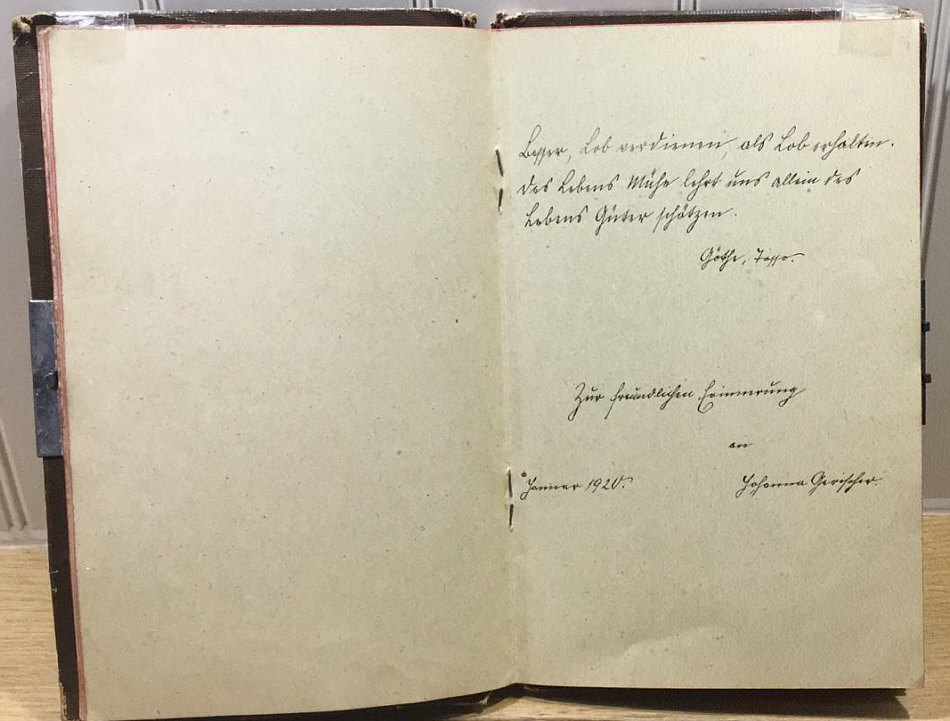 Besser, Lob verdienen, als Lob erhalten.
Des Lebens Mühe lehrt uns allein des
Lebens Güter schätzen.
Göthe, Tasso.
Zur freundlichen Erinnerung
an
Januar 1920.
Johanna Gerischer.